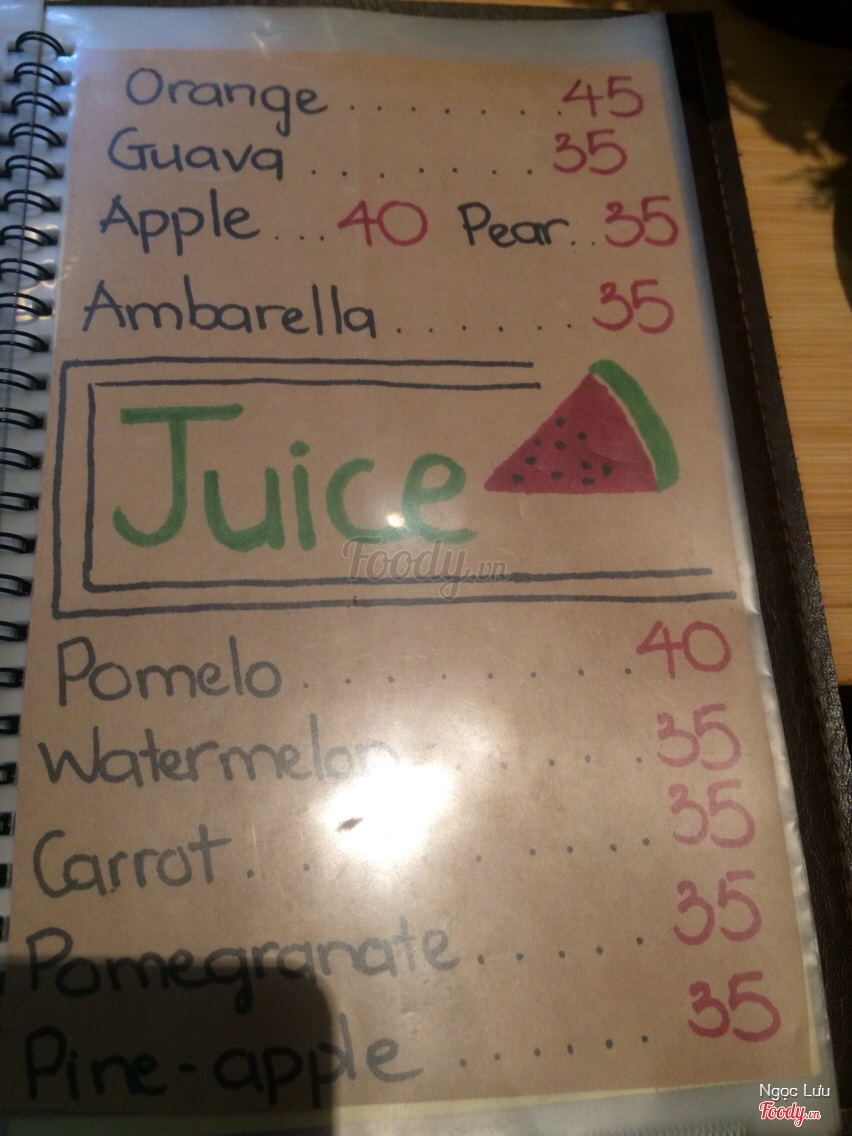 Orange . . . . . . . 45
Guava . . . . . . . . 35
Apple ... 40 Pear... 35
Ambarella . . . . . . 35
Juice
Foody.vn
Pomelo . . . . . . . . . 40
Watermelon . . . . . . 35
Carrot . . . . . . . . . 35
Pomegranate . . . . . . 35
Pine-apple . . . . . . 35
Ngọc Lưu
Foody.vn